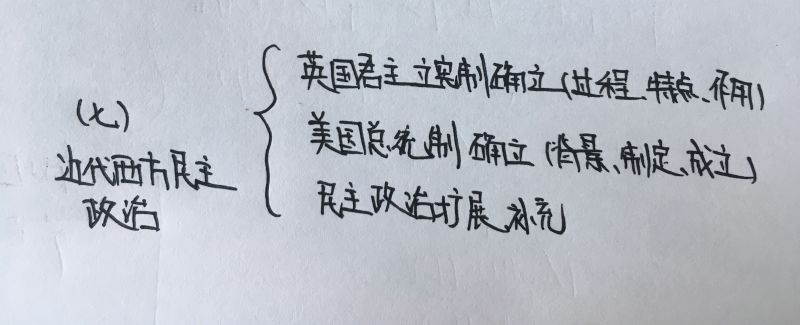 (七)
近代西方民主
政治
英国君主立宪制确立(过程、特点、作用)
美国总统制确立(背景、制定、成立)
民主政治扩展补充